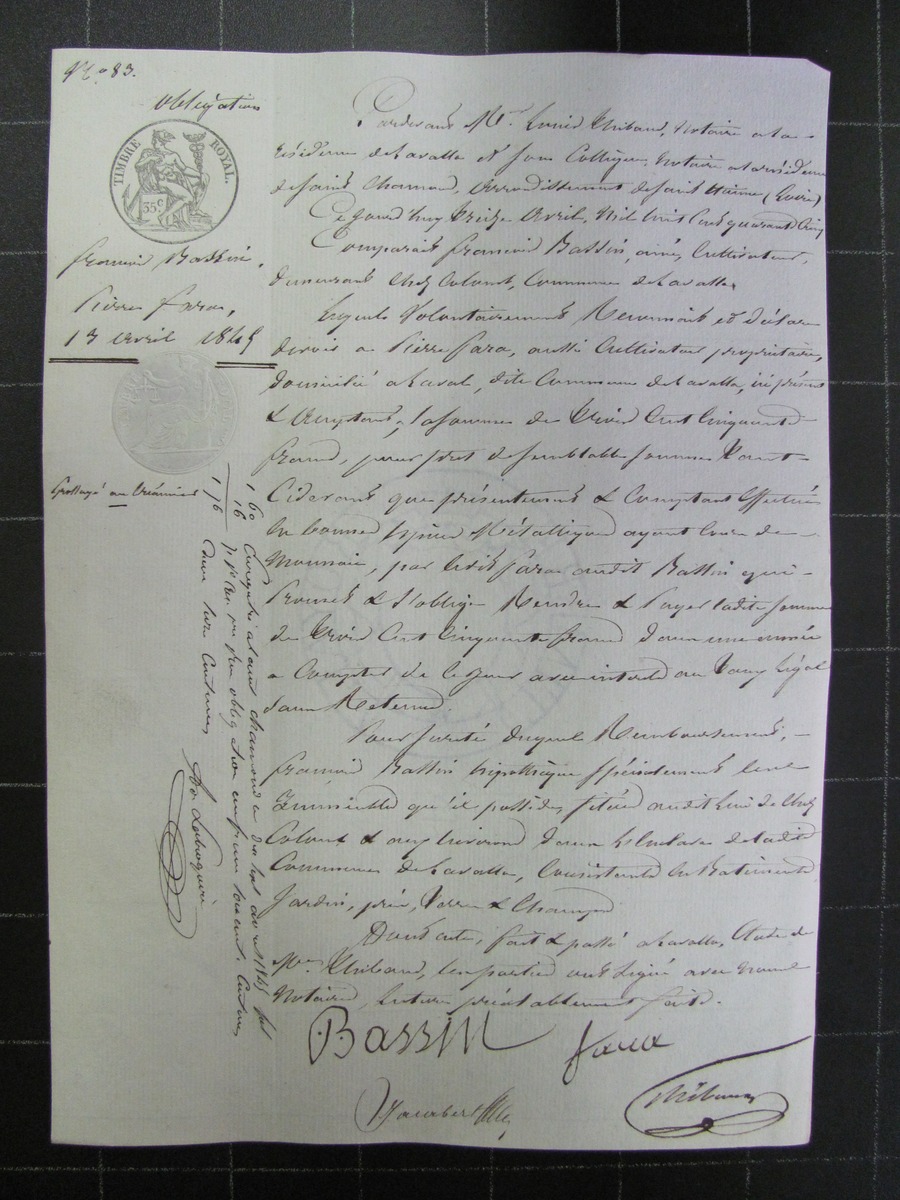 N.° 83.
obligation
TIMBRE ROYAL.
35 c
françois Bassin,
Pierre fara,
13 avril 1845
Grossoyé au Créancier
Pardevant M.e Louis Thibaud, Notaire à la
résidence de Lavalla et son Collègue, Notaire à la résidence
de saint Chamond, arrondissement de saint Etienne (Loire)
Ce jourd'huy treize avril, mil huit cent quarante cinq
Comparait françois Bassin, ainé, Cultivateur,
demeurant chez Colomb, Commune de Lavalla,
lequel Volontairement Reconnait et déclare
devoir à Pierre fara, aussi Cultivateur propriétaire,
domicilié à Laval, dite Commune de Lavalla, ici présent
& acceptant, la somme de trois Cent Cinquante
francs, pour prêt de semblable somme
que présentement & Comptant effectué
en bonnes espèces Métalliques ayant Cours de
Monnaie, par ledit fara audit Bassin qui
Promet & s'oblige Rendre & Payer ladite somme
de trois Cent Cinquante francs dans une année
à Compter de ce jour avec intérêt au Taux légal
sans Retenue.
Pour sureté duquel Remboursement,
françois Bassin hypothèque spécialement les
Immeubles qu'il possède, situés audit lieu de Chez
Colomb & aux environs dans l'Enclave de ladite
Commune de Lavalla, Consistants en Batiments
Jardin, prés, Terres & Champs
Dont acte, fait & passé à Lavalla, Etude de
M.e Thibaud, les parties ont signé avec nous
Notaires, lecture préalablement faite.
1 60
16
1 76
Enregistré à saint chamond le dix huit avril 1845 fol
obligation un franc soixante Centimes
Bassin
fara
Thibaud